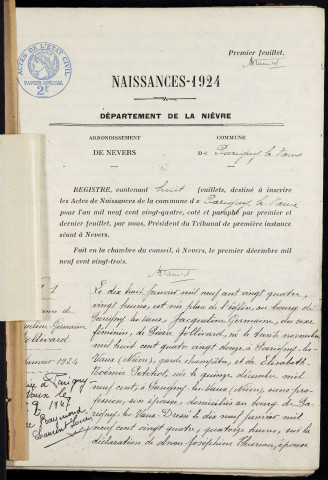 Premier feuillet.
ACTES DE L'ETAT CIVIL
PAPIER SPÉCIAL
2F
NAISSANCES-1924
DÉPARTEMENT DE LA NIÈVRE
ARRONDISSEMENT
DE NEVERS
COMMUNE
DE Parigny les Vaux
REGISTRE, contenant huit feuillets, destiné à inscrire
les Actes de Naissances de la commune de Parigny les Vaux
pour l'an mil neuf cent vingt-quatre, coté et paraphé par premier et
dernier feuillet, par nous, Président du Tribunal de première instance
séant à Nevers.
Fait en la chambre du conseil, à Nevers, le premier décembre mil
neuf cent vingt-trois.
Le dix huit janvier mil neuf cent vingt quatre,
vingt heures, est née au bourg de
Parigny les Vaux, Jacqueline Germaine, du sexe
féminin, de Pierre Tollivard, né le trente novembre
mil huit cent quatre vingt douze, à Parigny-les-
Vaux (Nièvre), garde champêtre, et de Elisabeth
Noémie Petitot, née le quinze décembre mil
neuf cent, à Parigny-les-Vaux (Nièvre), sans pro-
fession, son épouse, domiciliés au bourg de Pa-
rigny-les-Vaux. Dressé le dix neuf janvier mil
neuf cent vingt quatre, quatorze heures, sur la
déclaration de Anne-Joséphine Thureau, épouse
1
Germaine
Tollivard
janvier 1924
à Parigny
Vaux le
1947
Raymond
Laurent Lucien